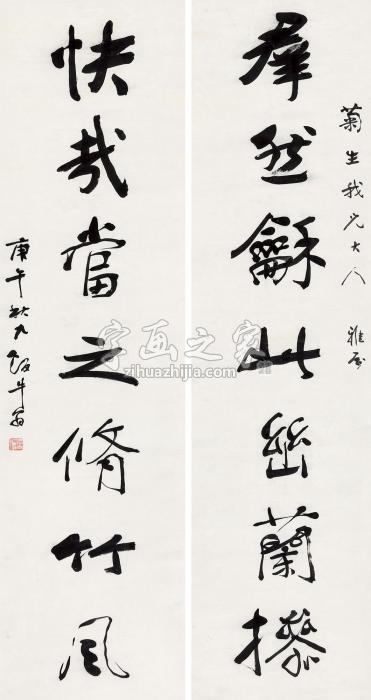 菊生我兄大人 雅屬
羣然龢此幽蘭操
快哉當之脩竹風
庚午秋九
字画之家
zihuazhijia.com